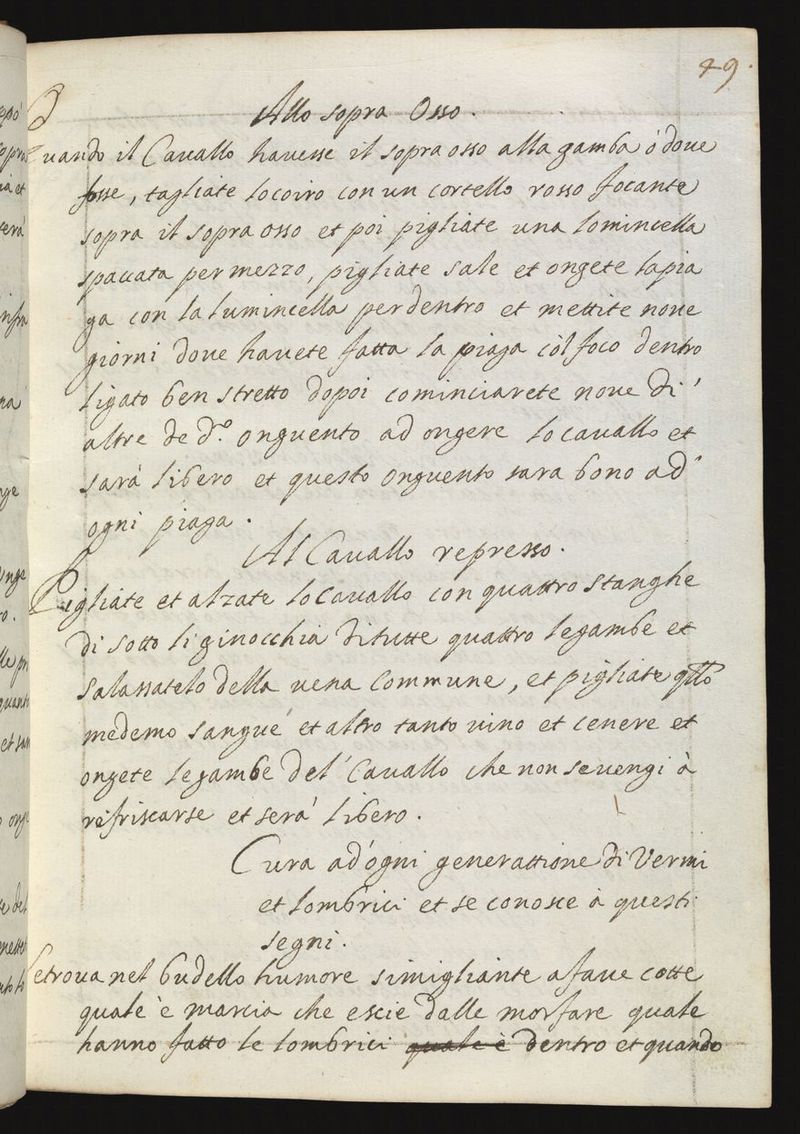 49.
Allo sopra Osso.
Quando il Cauallo hauesse il sopra osso alla gamba ò doue
fosse, tagliate lo coiro con un cortello rosso focante
sopra il sopra osso et poi pigliate una lomincella
spaccata per mezzo, pigliate sale et ongete la pia
ga con la lumincella per dentro et mettite noue
giorni doue hauete fatta la piaga còl foco dentro
ligato ben stretto dopoi cominciarete noue di'
altre de d.º onguento ad ongere lo cauallo et
sarà libero et questo onguento sara bono ad'
ogni piaga.
Al Cauallo represso.
Pigliate et alzate lo Cauallo con quattro stanghe
di sotto li ginocchia di tutte quattro le gambe et
salassatelo della uena commune, et pigliate qllo
medemo sangue et altro tanto uino et cenere et
ongete le gambe del' Cauallo che non se uengi à
refriscarse et serà libero.
Cura ad'ogni generattione di Vermi
et lombrici et se conosce à questi
segni.
Se troua nel budello humore simigliante a faue cotte
quale è marcia che escie dalle morfare quale
hanno fatto le lombrici quale è dentro et quando